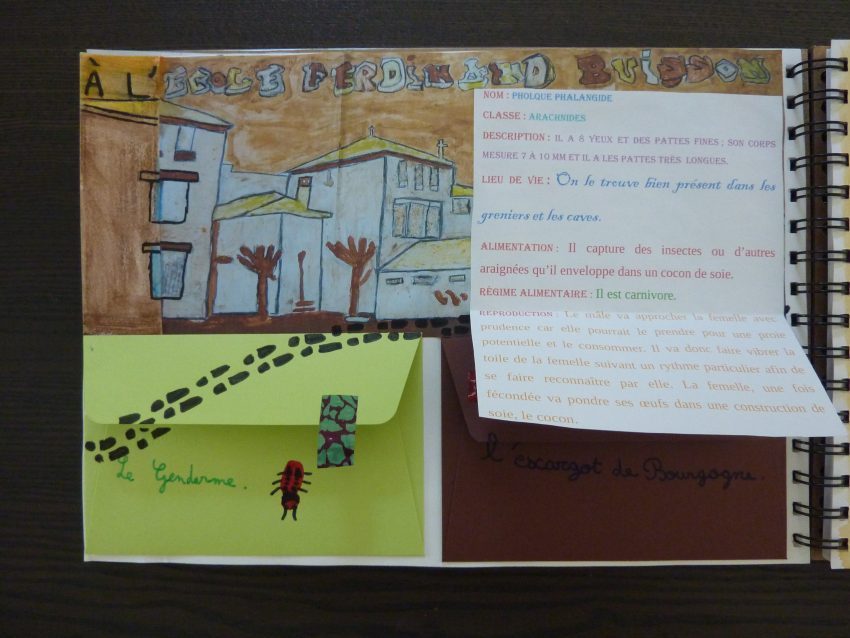 À L'ÉCOLE FERDINAND BUISSON
NOM : PHOLQUE PHALANGIDE
CLASSE : ARACHNIDES
DESCRIPTION : IL A 8 YEUX ET DES PATTES FINES ; SON CORPS
MESURE 7 À 10 MM ET IL A LES PATTES TRÈS LONGUES.
LIEU DE VIE : On le trouve bien présent dans les
greniers et les caves.
ALIMENTATION : Il capture des insectes ou d'autres
araignées qu'il enveloppe dans un cocon de soie.
RÉGIME ALIMENTAIRE : Il est carnivore.
REPRODUCTION : Le mâle va approcher la femelle avec
prudence car elle pourrait le prendre pour une proie
potentielle et le consommer. Il va donc faire vibrer la
toile de la femelle suivant un rythme particulier afin de
se faire reconnaître par elle. La femelle, une fois
fécondée va pondre ses œufs dans une construction de
soie, le cocon.
Le Gendarme.
l'escargot de Bourgogne.